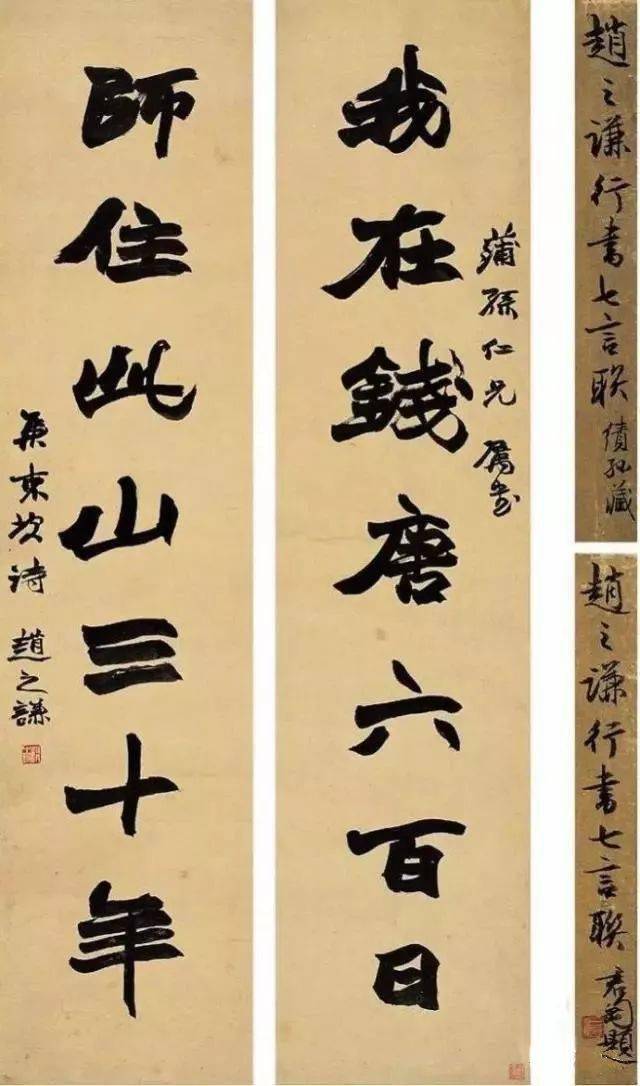 趙之谦行書七言联 藏
趙之谦行書七言联 君匋題
蒲孫仁兄属書
我在錢唐六百日
師住此山三十年
集東坡诗 趙之謙